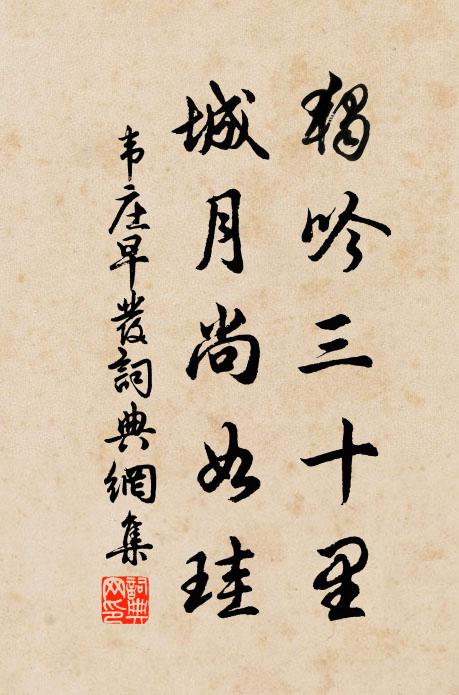 獨吟三十里
城月尚如珪
韦庄早發詞典網集
詞典網印